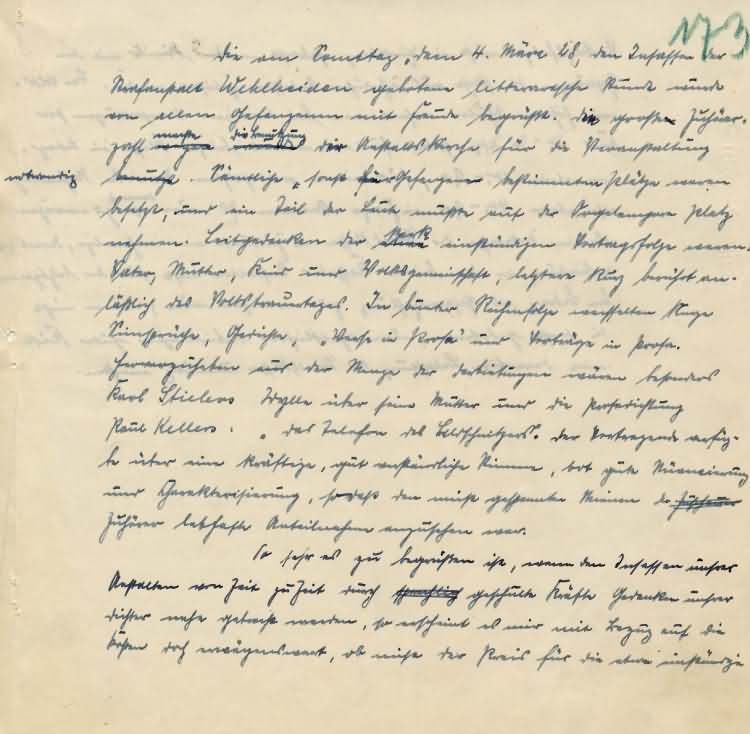 173
Die am Sonntag, dem 4. März 28, den Insassen der
Strafanstalt Wehlheiden gebotene litterarische Stunde wurde
von allen Gefangenen mit Freude begrüßt. Die große Zuhörer-
zahl machte die Benutzung der Anstaltskirche für die Veranstaltung
notwendig
benutzt. Sämtliche, sonst für Gefangene bestimmten Plätze waren
besetzt, und ein Teil der Leute mußte auf der Orgelempore Platz
nehmen. Leitgedanken der stark einstündigen Vortragsfolge waren:
Vater, Mutter, Kind und Volksgemeinschaft, letztere kurz berührt an-
läßlich des Volkstrauertages. In bunter Reihenfolge wechselten kurze
Sinnsprüche, Gedichte, "Verse in Prosa" und Vorträge in Prosa.
Hervorzuheben aus der Menge der Darbietungen wären besonders
Karl Stielers Idylle über seine Mutter und die Prosadichtung
Paul Kellers: "Das Telefon des Bildschnitzers". Der Vortragende verfüg-
te über eine kräftige, gut verständliche Stimme, bot gute Nüancierung
und Charakterisierung, sodaß den meist gespannten Mienen der
Zuhörer lebhafte Anteilnahme anzusehen war.
So sehr es zu begrüßen ist, wenn den Insassen unsrer
Anstalten von Zeit zu Zeit durch sprachlich geschulte Kräfte Gedanken unsrer
Dichter nahe gebracht werden, so erscheint es mir mit Bezug auf die
Kosten doch erwägenswert, ob nicht der Preis für die etwa einstündige